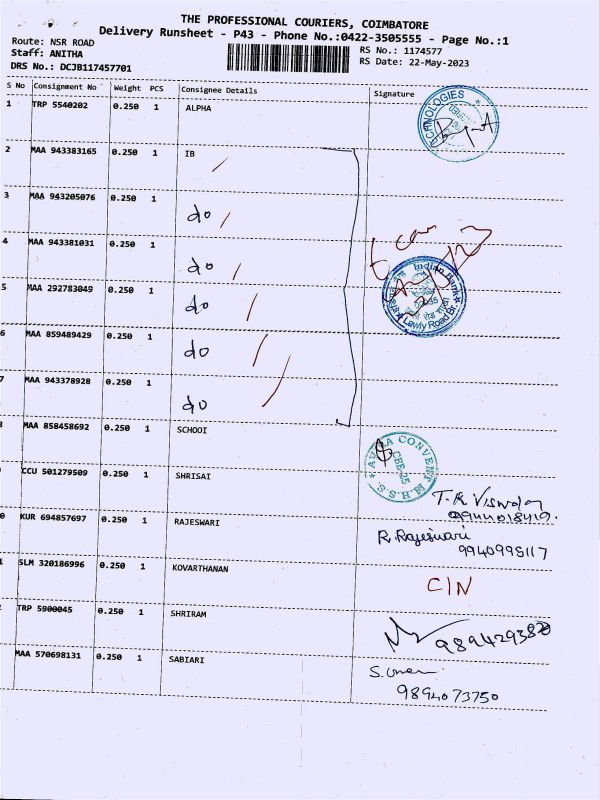 THE PROFESSIONAL COURIERS, COIMBATORE
Delivery Runsheet - P43 - Phone No.:0422-3505555 - Page No.:1
Route: NSR ROAD
Staff: ANITHA
DRS No.: DCJB117457701
RS No.: 1174577
RS Date: 22-May-2023
S No Consignment No Weight PCS Consignee Details Signature
1 TRP 5540202 0.250 1 ALPHA
2 MAA 943383165 0.250 1 IB
3 MAA 943205076 0.250 1 do
4 MAA 943381031 0.250 1 do
5 MAA 292783049 0.250 1 do
6 MAA 859489429 0.250 1 do
7 MAA 943378928 0.250 1 do
Indian Bank
Lawly Road Br.
8 MAA 858458692 0.250 1 SCHOOl
CONVENT M.H.S.S.
CBE-25
CCU 501279509 0.250 1 SHRISAI
0 KUR 694857697 0.250 1 RAJESWARI
R. Rajeswari
9940998117
1 SLM 320186996 0.250 1 KOVARTHANAN CIN
TRP 5900045 0.250 1 SHRIRAM
MAA 570698131 0.250 1 SABIARI
9894073750